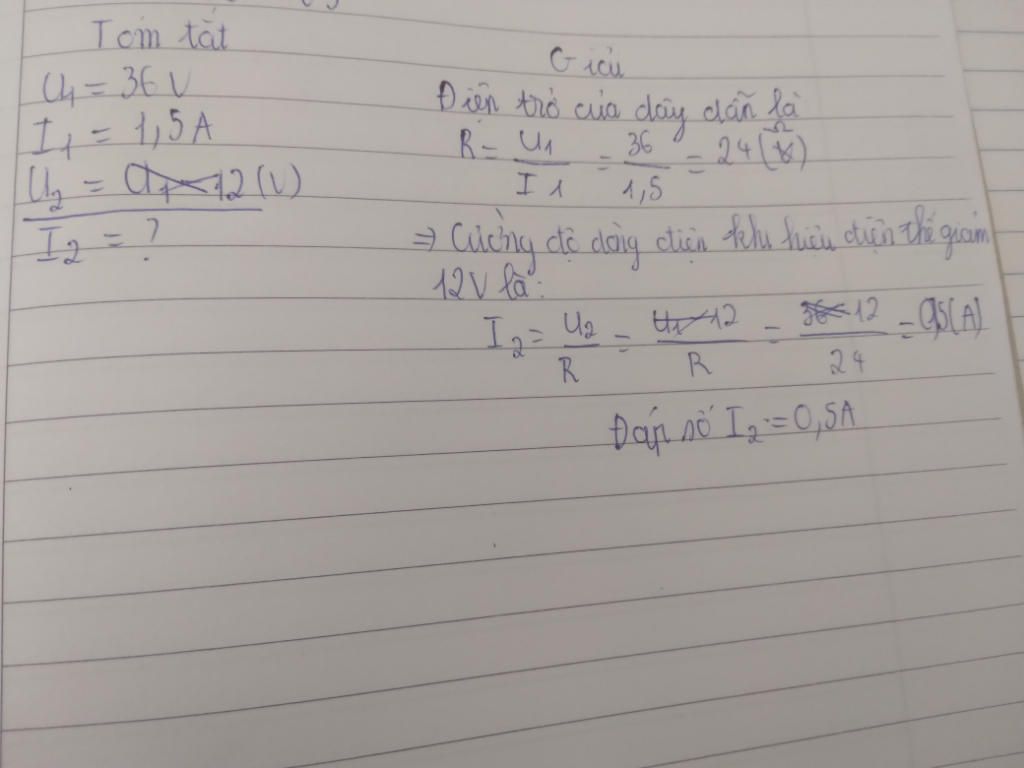 Tóm tắt
U1 = 36 V
I1 = 1,5 A
U2 = U1 - 12 (V)
I2 = ?
Giải
Điện trở của dây dẫn là
R = U1/I1 = 36/1,5 = 24 (Ω)
=> Cường độ dòng điện khi hiệu điện thế giảm
12V là:
I2 = U2/R = U1 - 12/R = 36 - 12/24 = 0,5 (A)
Đáp số I2 = 0,5A